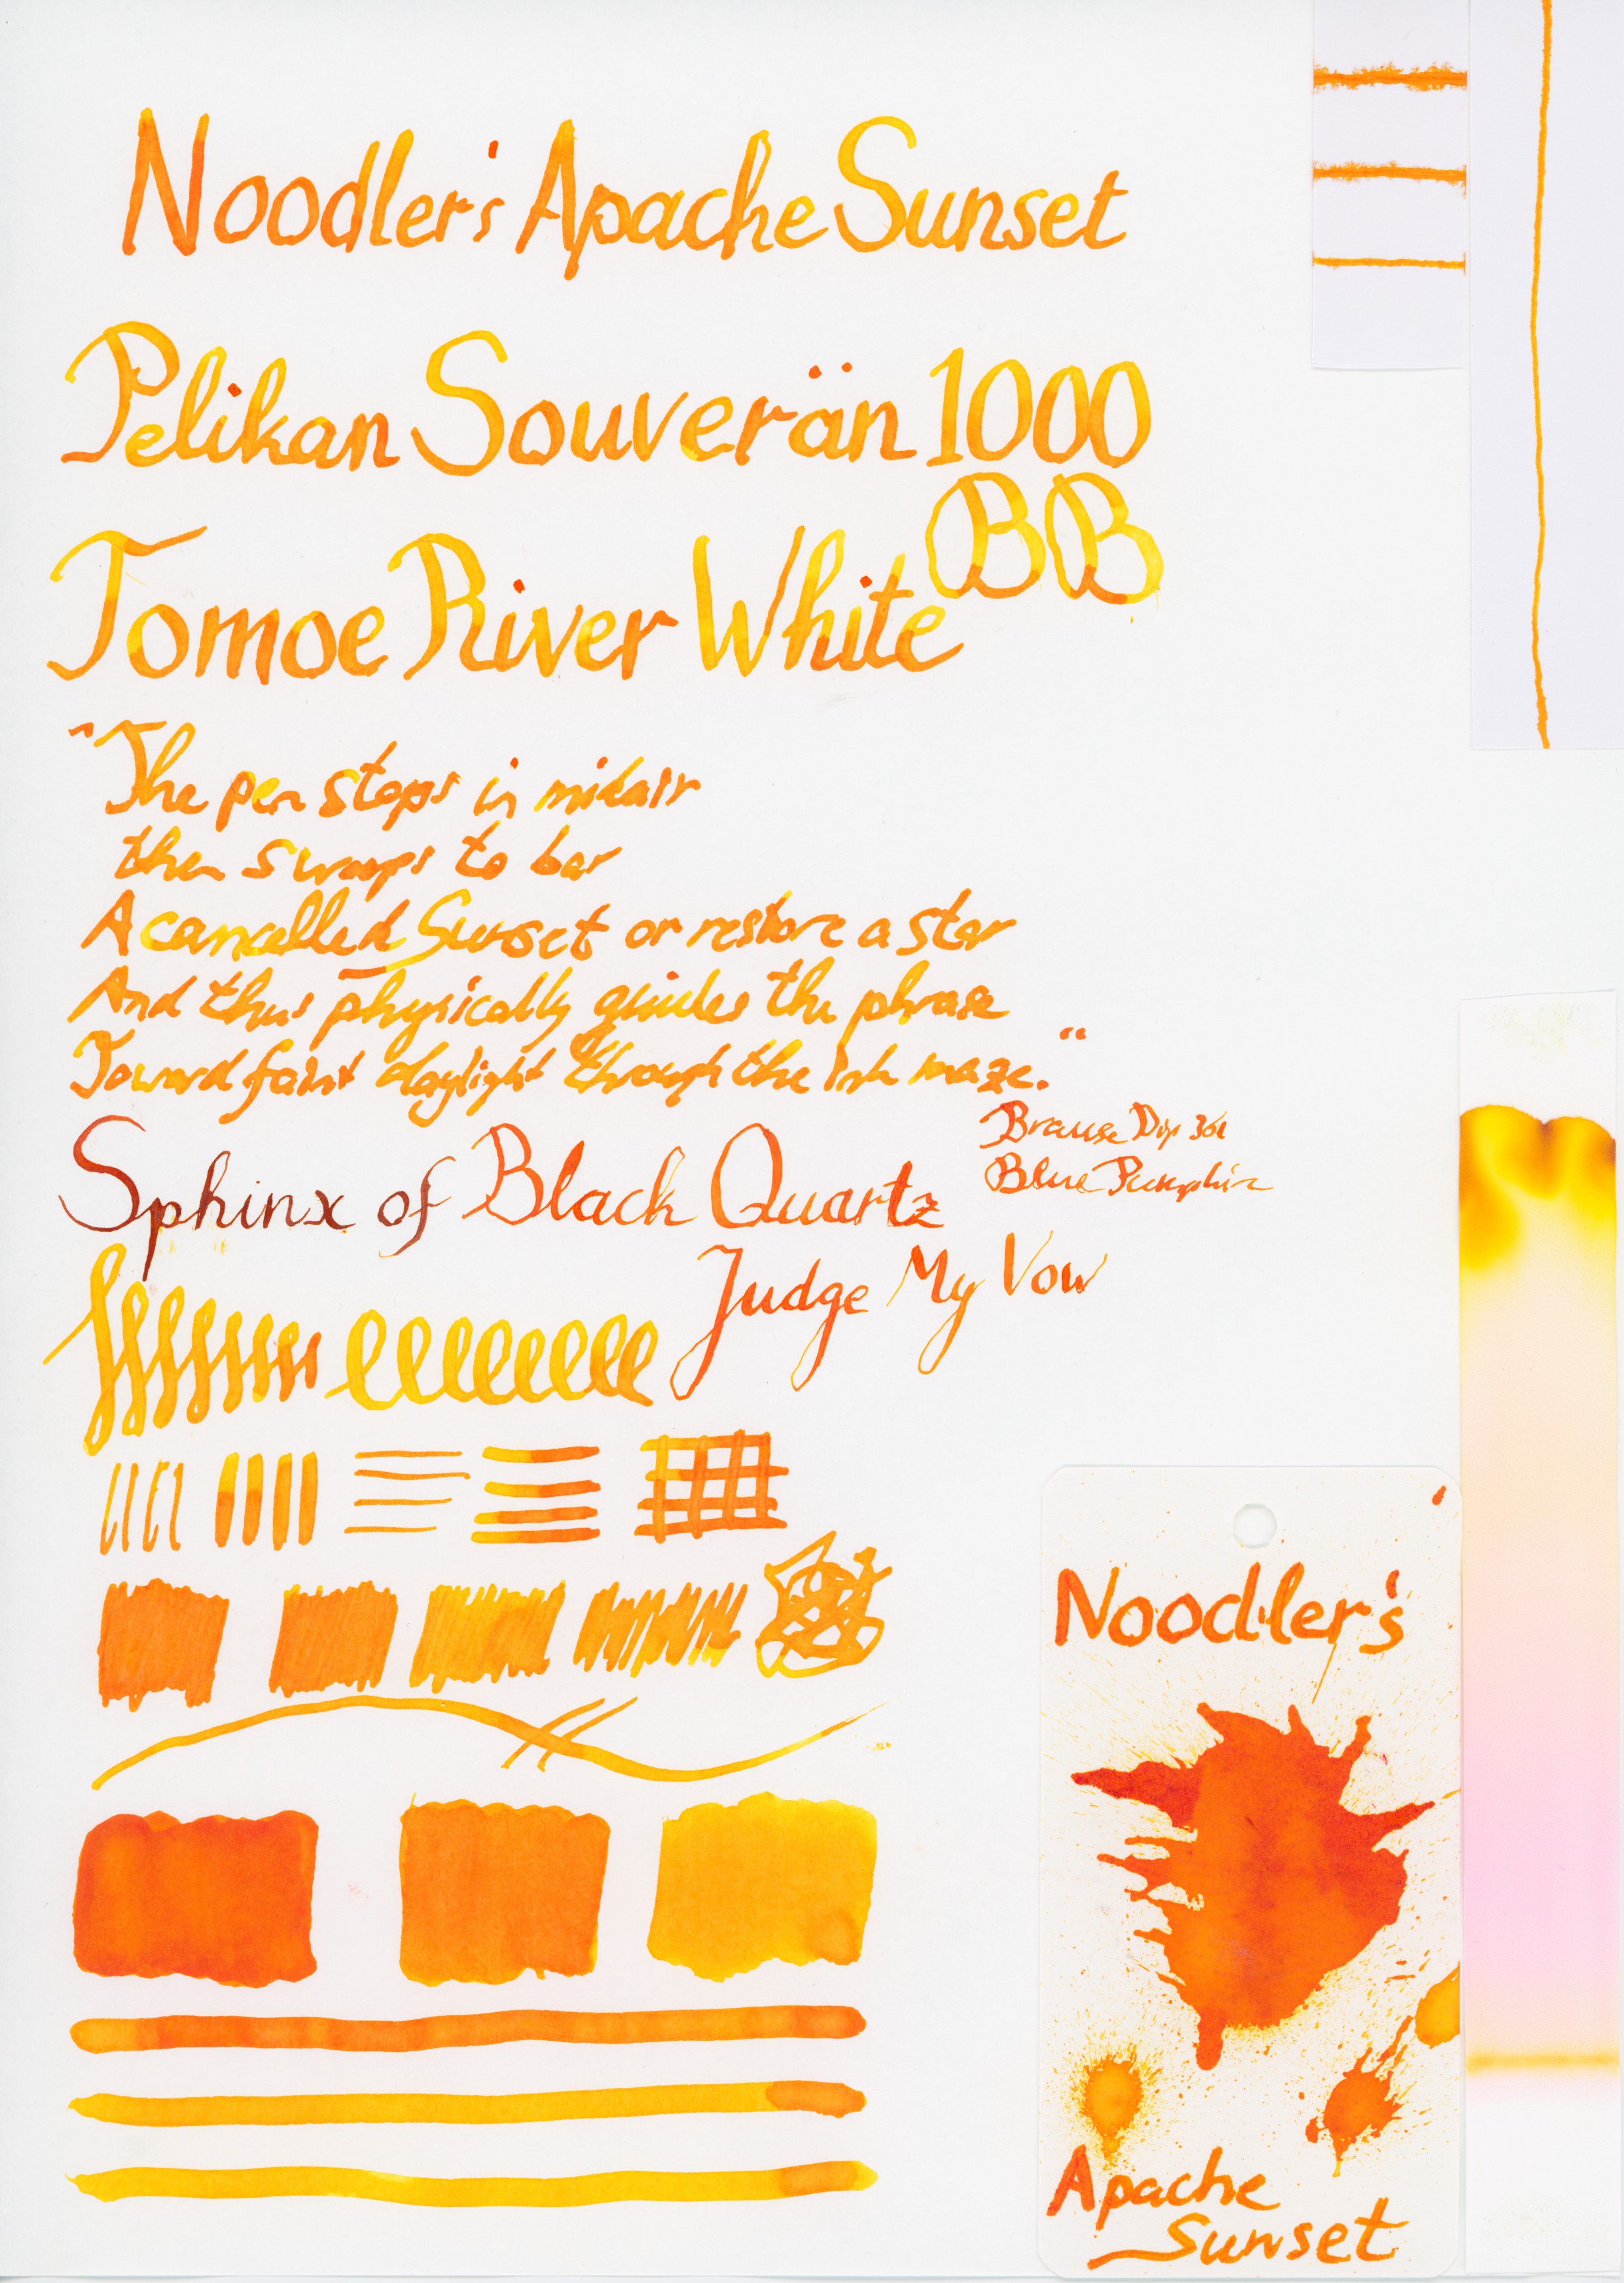 Noodler's Apache Sunset
Pelikan Souverän 1000
BB
Tomoe River White
"The pen stops in midair
then swoops to bar
A cancelled Sunset or restore a star
And thus physically guides the phrase
Toward faint daylight through the ink maze."
Sphinx of Black Quartz
Brause Dip 361
Blue Pumpkin
Judge My Vow
Noodler's
Apache
Sunset